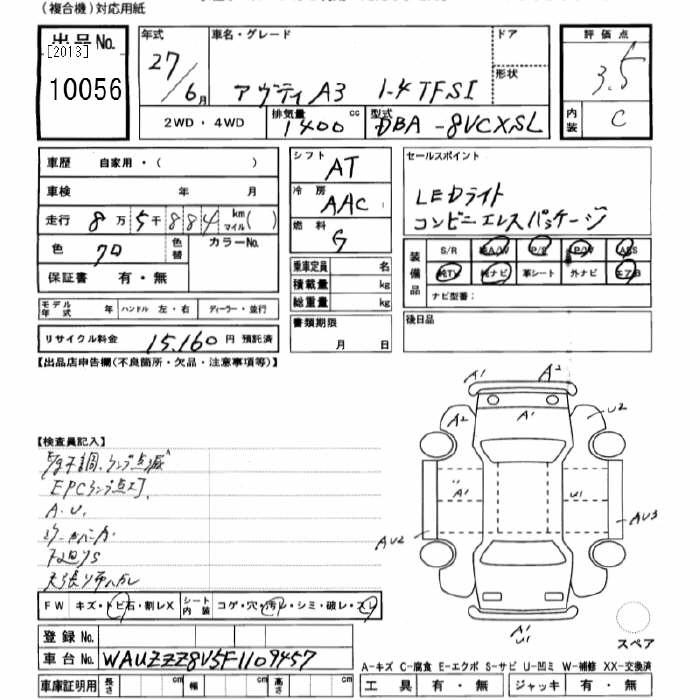 (複合機)対応用紙
出品No.
[2013]
10056
年式
27/6月
車名・グレード
アウディ A3 1-4 TFSI
ドア
形状
評価点
3.5
内装
C
2WD・4WD
排気量
1400 cc
型式
DBA-8VCXSL
車歴 自家用・( )
車検 年 月
走行 8万5千884 km マイル( )
色 クロ
色替
カラーNo.
保証書 有・無
モデル年式 年 ハンドル 左・右 ディーラー・並行
リサイクル料金 15,160円 預託済
シフト AT
冷房 AAC
燃料 G
乗車定員 名
積載量 kg
総重量 kg
書類期限
月 日
セールスポイント
LEDライト
コンビニエレスパッケージ
装備品
S/R A/W P/S P/W ABS
純TV 純ナビ 革シート 外ナビ エアB
ナビ型番:
後日品
【出品店申告欄(不良箇所・欠品・注意事項等)】
【検査員記入】
E/g不調、ランプ点滅
EPCランプ点灯
A.U.
天張り
A1 A2
A2 A1 U2
A1 U1
AU2 AU3
A1
U1
スペア
FW キズ・トビ石・割レX シート内装 コゲ・穴・汚レ・シミ・破レ・スレ
登録No.
車台No. WAUZZZ8V5F1109457
車庫証明用 長さ cm 幅 cm 高さ cm
A-キズ C-腐食 E-エクボ S-サビ U-凹ミ W-補修 XX-交換済
工具 有・無 ジャッキ 有・無